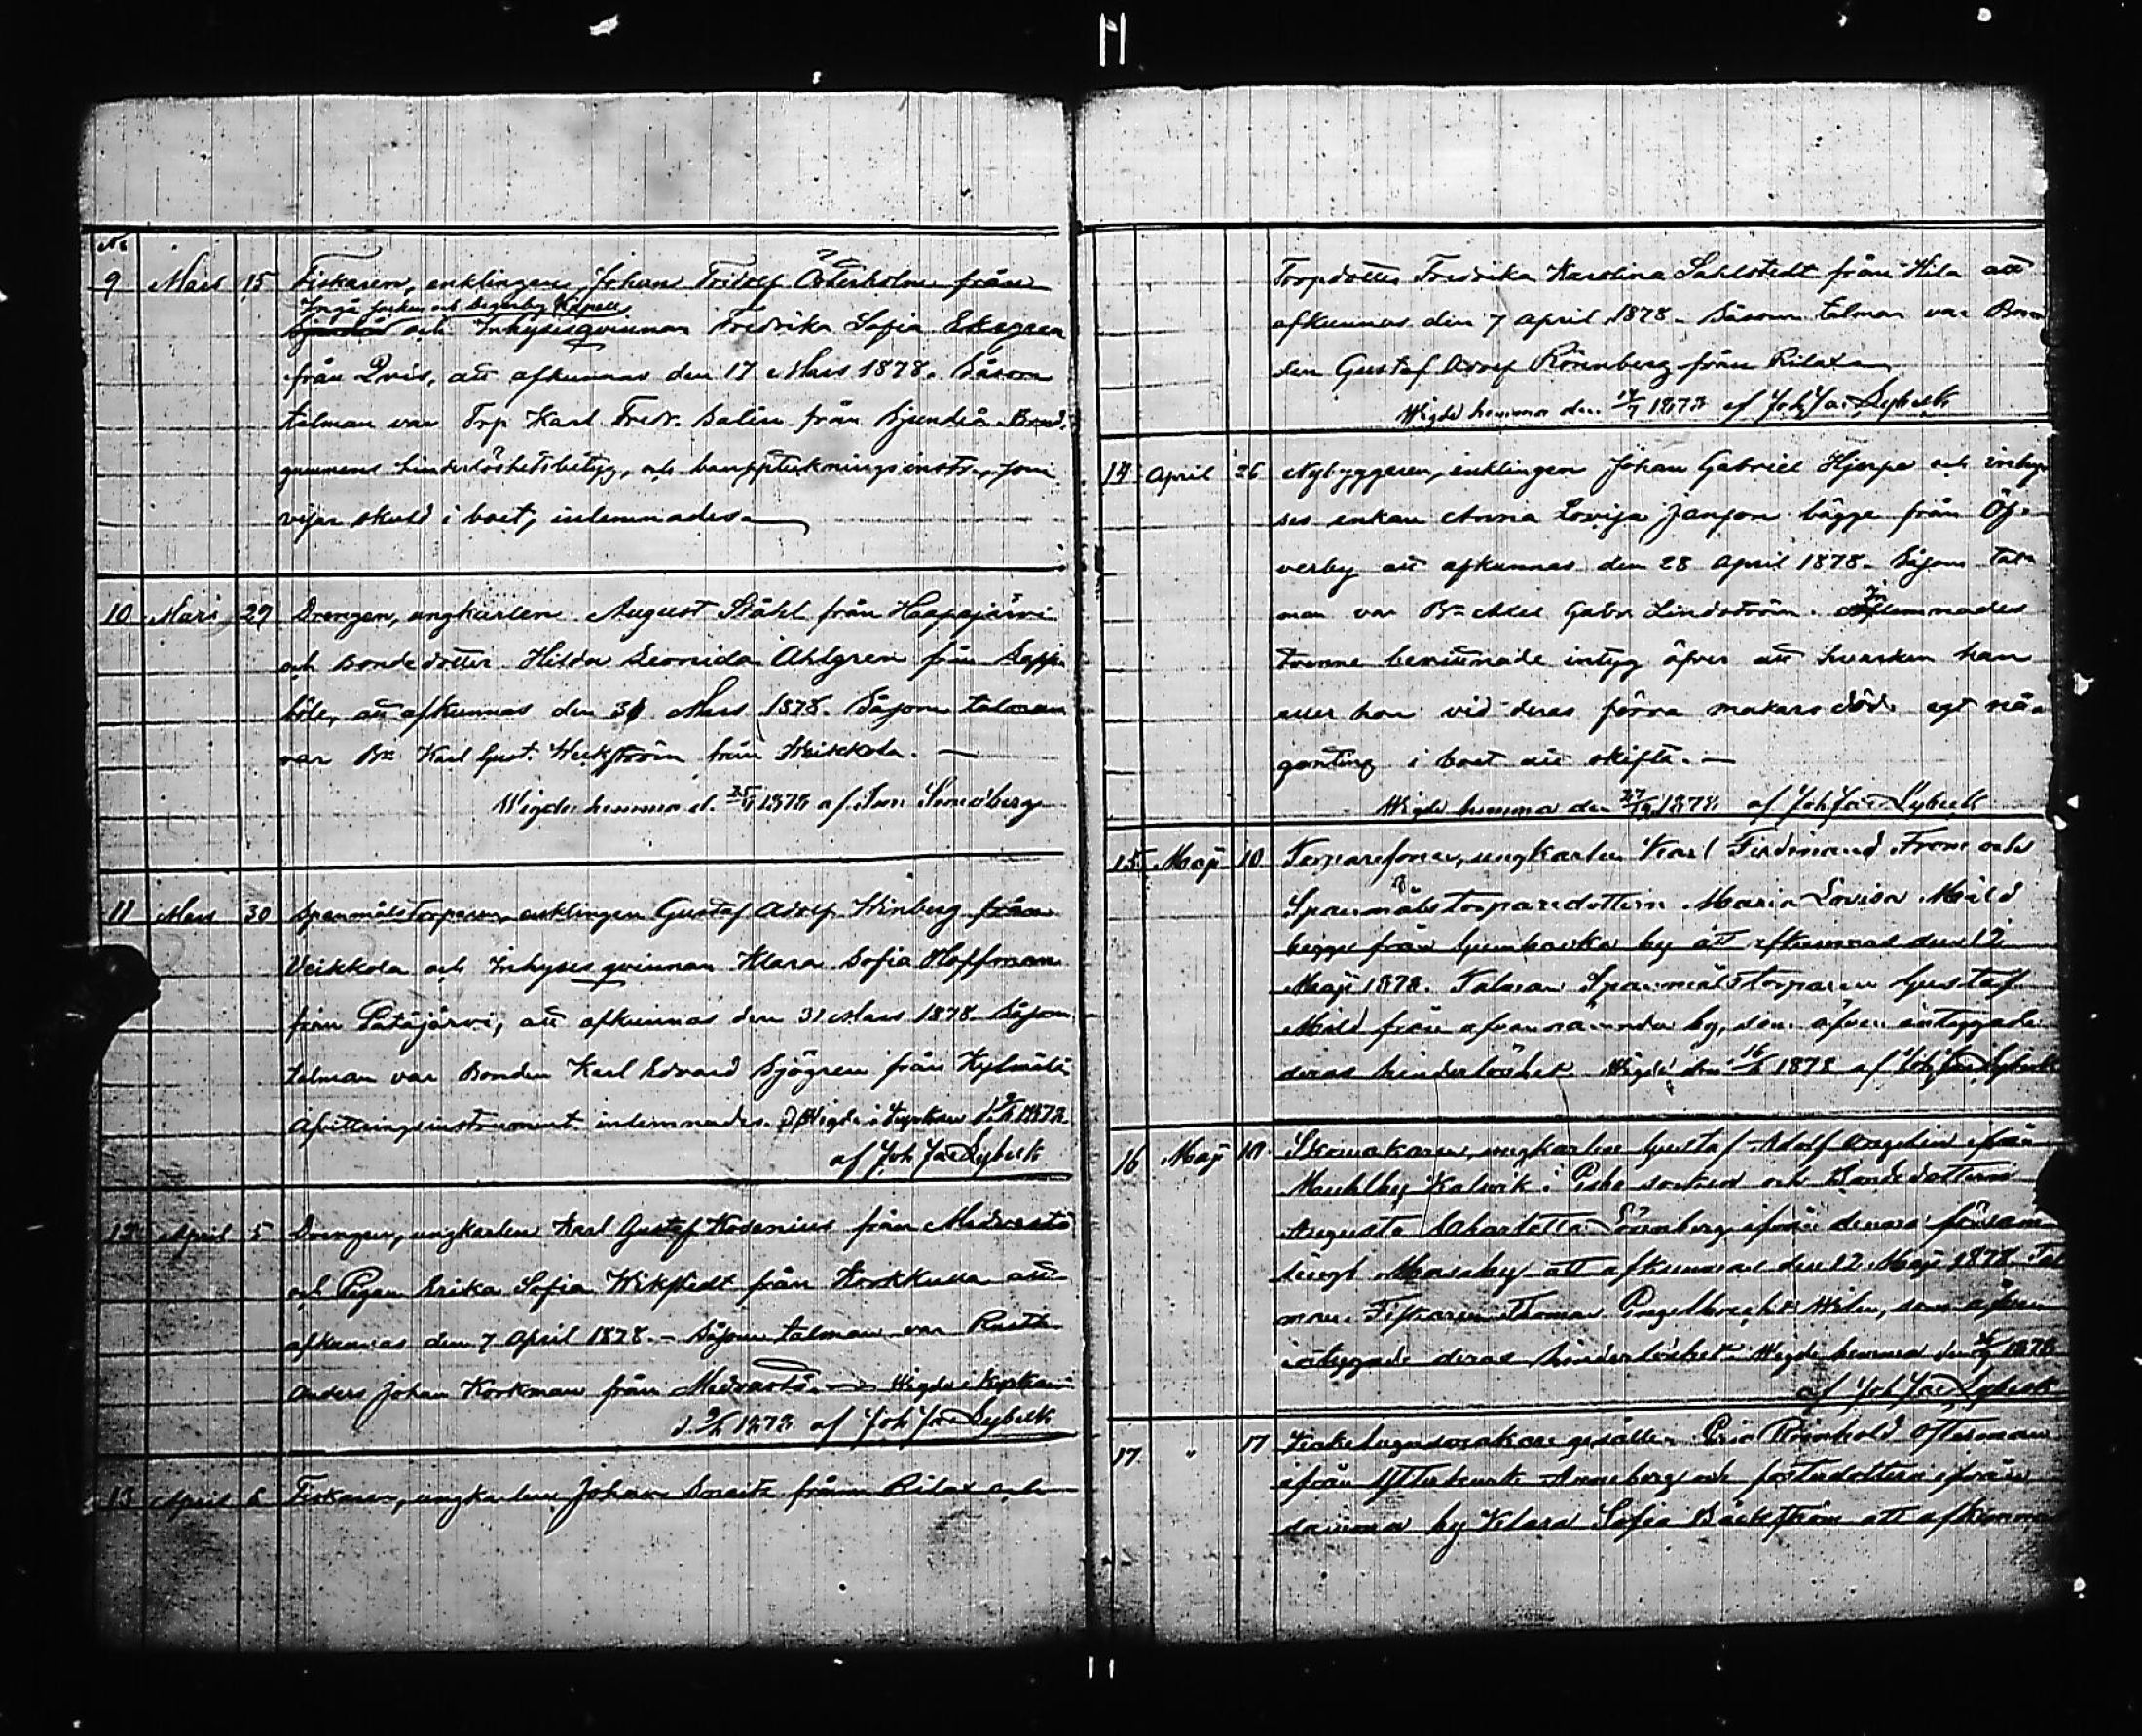 No
9 Mars 15 Fiskaren, enklingen Johan Fridolf Österholm från
Ingå socken och Degerby Kapell
och Inhysesqvinnan Fredrika Sofia Ekegren
från Qvis, att afkunnas den 17 Mars 1878. Såsom
talman var Trp Karl Fredr. Salin från Sjundeå. Brud-
gummens hinderlöshetsbetyg, och bouppteckningsinstr., som
visar skuld i boet, inlemnades.
10 Mars 29 Drengen, ungkarlen August Ståhl från Haapajärvi
och Bondedotter Hilda Leonida Ahlgren från Sepp
böle, att afkunnas den 31 Mars 1878. Såsom talman
var Bn Karl Gust. Weckström från Weikkola.
Wigde hemma d. 1878 af
11 Mars 30 Spanmålstorparen, enklingen Gustaf Adolf Winberg från
Veikkola och Inhyses qvinnan Klara Sofia Hoffman
från Petäjärvi, att afkunnas den 31 Mars 1878. Såsom
talman var Bonden Karl Edvard Sjögren från Kylmälä
Afvittringsinstrument inlemnades. Wigde i Kyrkan d. 1878
af Joh Jac Lybeck
12 April 5 Drengen, ungkarlen Karl Gustaf Rosenius från Medvastö
och Pigan Erika Sofia Wikstedt från Korkkulla att
afkunnas den 7 April 1878. Såsom talman var Rusth
Anders Johan Korkman från Medvastö. Wigde i Kyrkan
d. 1878 af Joh Jac Lybeck
13 April 6 Fiskaren, ungkarlen Johan från Rilax och
Torpdotter Fredrika Karolina Sahlstedt från Hila att
afkunnas den 7 April 1878. Såsom talman var Bon
den Gustaf Adolf Rönnberg från Rilax
Wigde hemma den 1878 af Joh Jac Lybeck
14 April 26 Nybyggaren, enklingen Johan Gabriel Hjerpe och inhy
ses enkan Anna Lovisa Janson bägge från Öf-
verby att afkunnas den 28 April 1878. Såsom tal-
man var Bn Axel Gabr Lindström. Inlemnades
trenne bevittnade intyg öfver att hvarken han
eller hon vid deras förra makars död egt nå-
gonting i boet att skifta.
Wigde hemma den 1878 af Joh Jac Lybeck
15 Maji 10 Torparesonen, ungkarlen Karl Ferdinand From och
Spanmålstorparedottern Maria Lovisa Mild
begge från by att afkunnas den 12
Maji 1878. Talman Spanmålstorparen Gustaf
Mild från ofvannämnda by, som äfven intygade
deras hinderlöshet. Wigde den 1878 af Joh Jac Lybeck
16 Maji 10 Skomakaren, ungkarlen Gustaf Adolf Angelin från
Kalvik i socken och Bondedottern
Augusta Charlotta Sönnberg från denna försam
lings Masaby att afkunnas den 12 Maji 1878. Tal
man Fiskaren Thomas Engelbrecht Wilen, som äfven
intygade deras hinderlöshet. Wigde hemma den 1878
af Joh Jac Lybeck
17 " 17 Kakelugnsmakare gesällen Eric Reinhold Österman
från Ytterkurk och fosterdottern från
samma by Klara Sofia Bäckström att afkunna